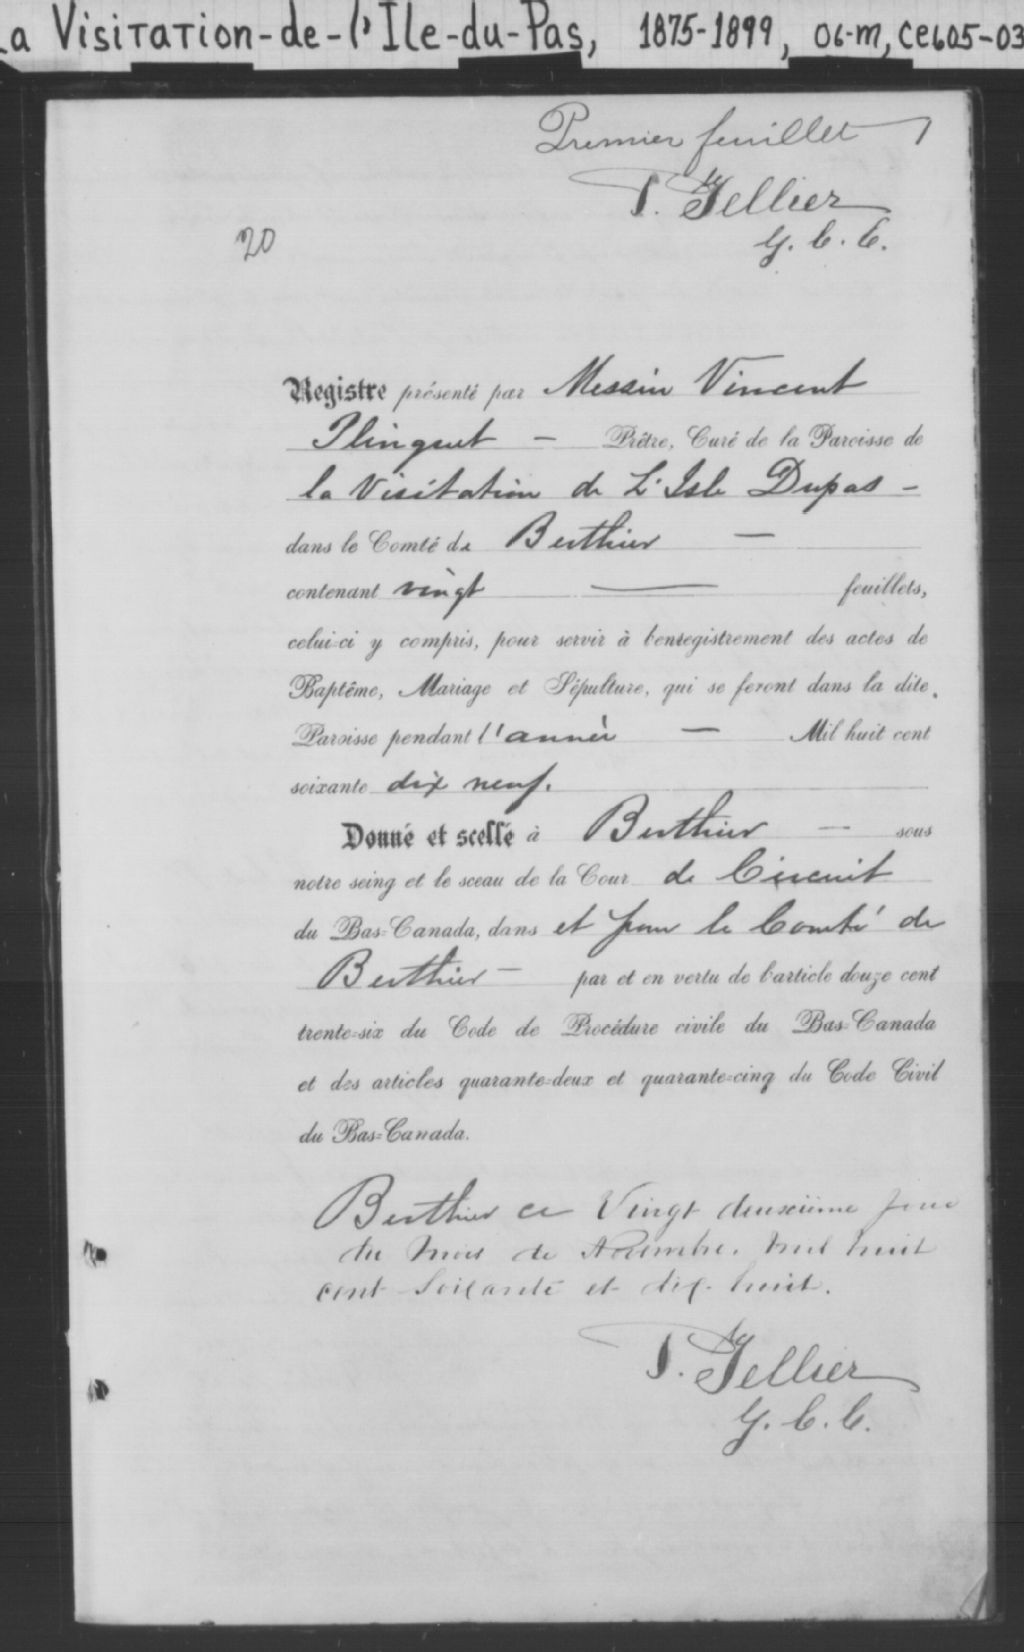 La Visitation-de-l'Ile-du-Pas, 1875-1899, 06-m, CE605-03
Premier feuillet
P. Tellier
G. C. C.
20
Registre présenté par Messire Vincent
Plinguet — Prêtre, Curé de la Paroisse de
la Visitation de L'Isle Dupas -
dans le Comté de Berthier —
contenant vingt — feuillets,
celui-ci y compris, pour servir à l'enregistrement des actes de
Baptême, Mariage et Sépulture, qui se feront dans la dite
Paroisse pendant l'année — Mil huit cent
soixante dix neuf.
Donné et scellé à Berthier — sous
notre seing et le sceau de la Cour de Circuit
du Bas-Canada, dans et pour le Comté de
Berthier — par et en vertu de l'article douze cent
trente-six du Code de Procédure civile du Bas-Canada
et des articles quarante-deux et quarante-cinq du Code Civil
du Bas-Canada.
Berthier ce Vingt deuxième jour
du mois de Novembre. mil huit
cent Soixante et dix-huit.
P. Tellier
G. C. C.